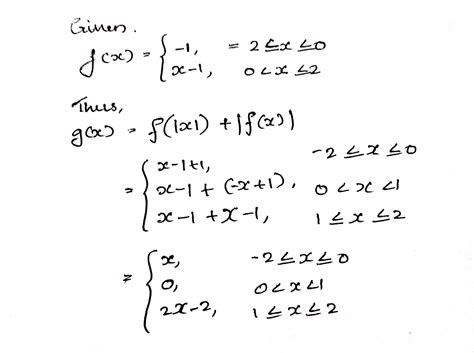 Given.
f(x) = { -1, = 2 ≤ x ≤ 0
x-1, 0 < x ≤ 2
Thus,
g(x) = f(|x|) + |f(x)|
= { x-1+1, -2 ≤ x ≤ 0
x-1 + (-x+1), 0 < x < 1
x-1 + x-1, 1 ≤ x ≤ 2
= { x, -2 ≤ x ≤ 0
0, 0 < x < 1
2x-2, 1 ≤ x ≤ 2